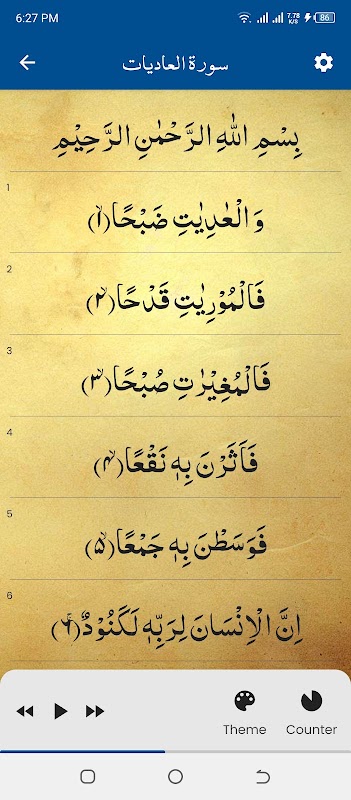 6:27 PM 7.78 K/S 86
سورة العاديات
بِسْمِ اللّٰهِ الرَّحْمٰنِ الرَّحِيْمِ
1
وَ الْعٰدِيٰتِ ضَبْحًا(۱)
2
فَالْمُوْرِيٰتِ قَدْحًا(۲)
3
فَالْمُغِيْرٰتِ صُبْحًا(۳)
4
فَاَثَرْنَ بِهٖ نَقْعًا(۴)
5
فَوَسَطْنَ بِهٖ جَمْعًا(۵)
6
اِنَّ الْاِنْسَانَ لِرَبِّهٖ لَكَنُوْدٌ(۶)
Theme Counter